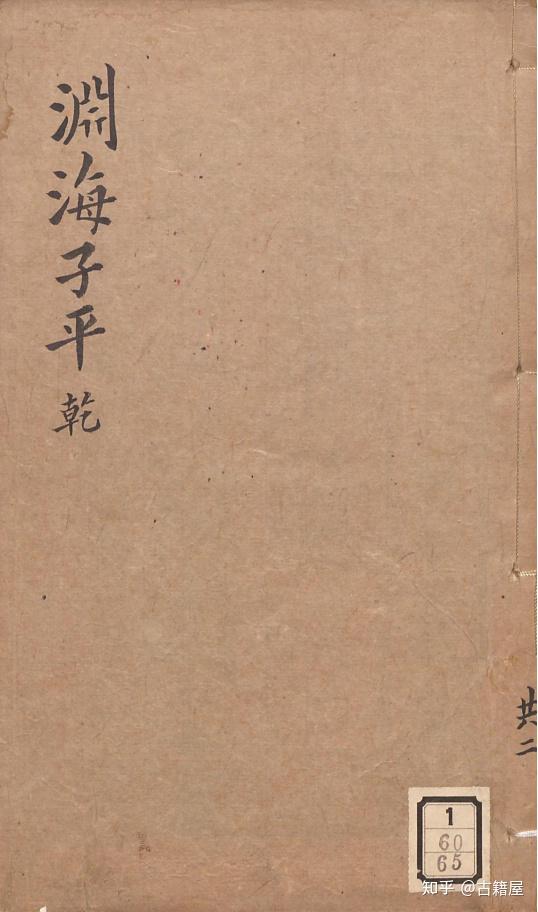 淵海子平 乾
共二
1
60
65
知乎 @古籍屋